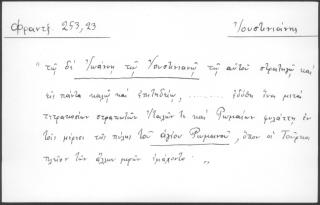 Φραντζ. 253,23 Ἰουστινιάνης
"τῷ δὲ Ἰωάννῃ τῷ Ἰουστινιανῷ τῷ αὐτοῦ στρατηγῷ καὶ
εἰς πάντα καλῷ καὶ ἐπιτηδείῳ, ........ ἐδόθη ἵνα μετὰ
τετρακοσίων στρατιωτῶν Ἰταλῶν τε καὶ Ῥωμαίων φυλάττῃ ἐν
τοῖς μέρεσι τῆς πύλης τοῦ ἁγίου Ῥωμανοῦ, ὅπου οἱ Τοῦρκοι
πλεῖον τῶν ἄλλων μερῶν ἐμάχοντο."